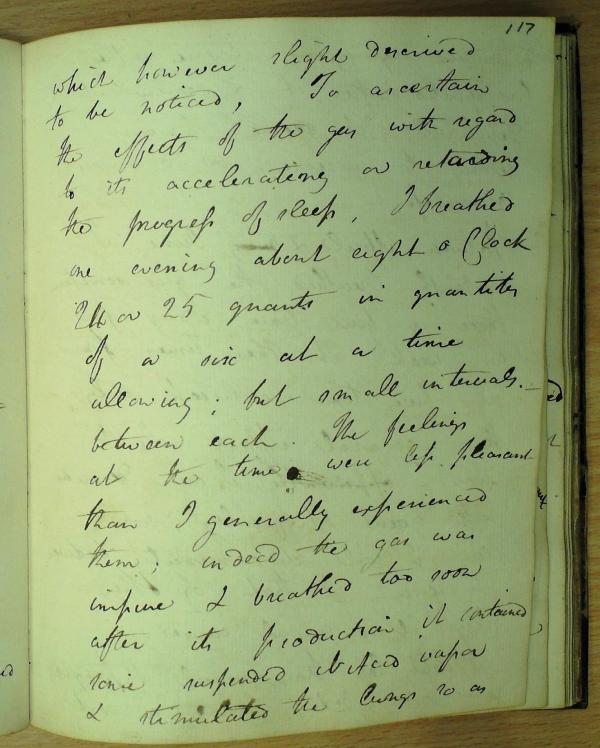 117
which however slight deserved
to be noticed, To ascertain
the effects of the gas with regard
to its accelerating or retarding
the progress of sleep, I breathed
one evening about eight o Clock
24 or 25 quarts in quantities
of a six at a time
allowing; but small intervals.
between each. The feelings
at the time were less pleasant
than I generally experienced
them; indeed the gas was
impure & breathed too soon
after its production it contained
some suspended Acid vapor
& stimulated the lungs so as